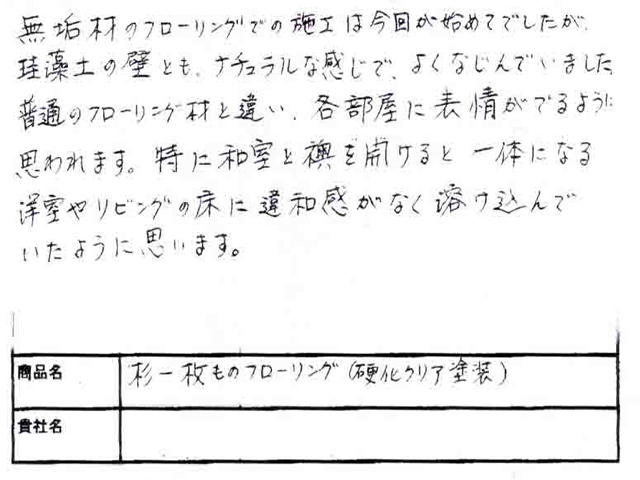 無垢材のフローリングでの施工は今回が始めてでしたが、
珪藻土の壁とも、ナチュラルな感じで、よくなじんでいました。
普通のフローリング材と違い、各部屋に表情がでるように
思われます。特に和室と襖を開けると一体になる
洋室やリビングの床に違和感がなく溶け込んで
いたように思います。
商品名 杉一枚ものフローリング(硬化クリア塗装)
貴社名